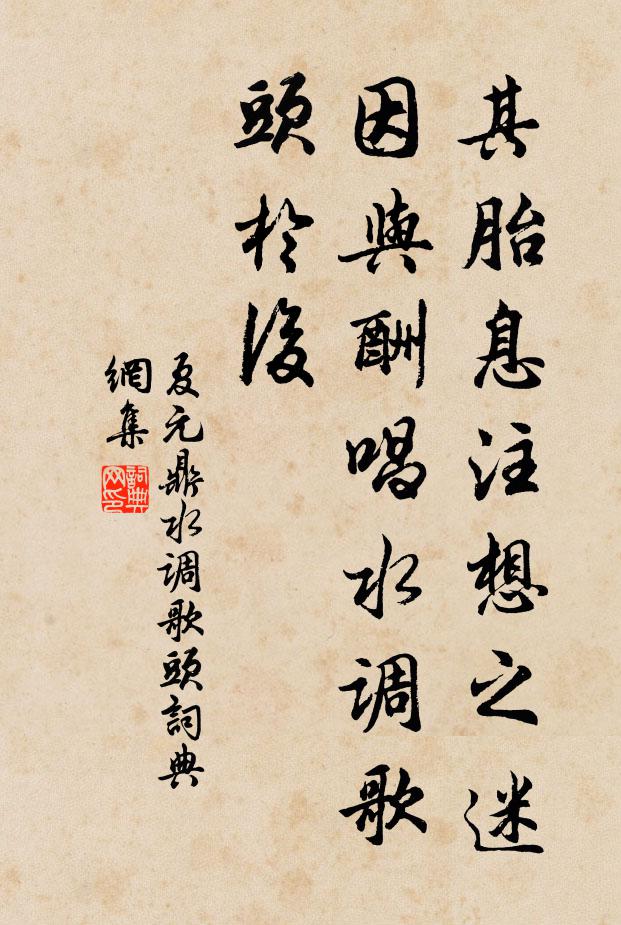 其胎息注想之迷
因與酬唱水调歌
頭於後
夏元鼎水调歌頭詞典
網集
詞典网印